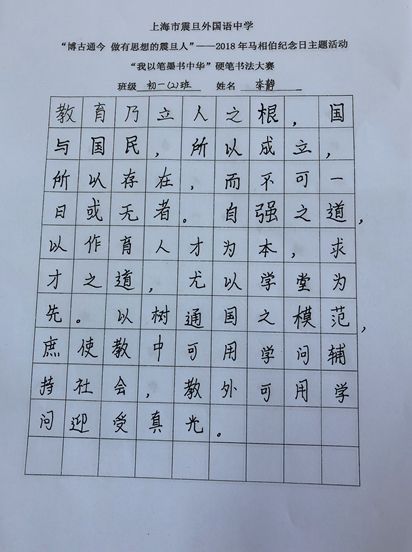 上海市震旦外国语中学
“博古通今 做有思想的震旦人”——2018年马相伯纪念日主题活动
“我以笔墨书中华”硬笔书法大赛
班级 初一(2)班 姓名 李静
教育乃立人之根，国
与国民，所以成立，
所以存在，而不可一
日或无者。自强之道，
以作育人才为本，求
才之道，尤以学堂为
先。以树通国之模范，
庶使教中可用学问辅
持社会，教外可用学
问迎受真光。